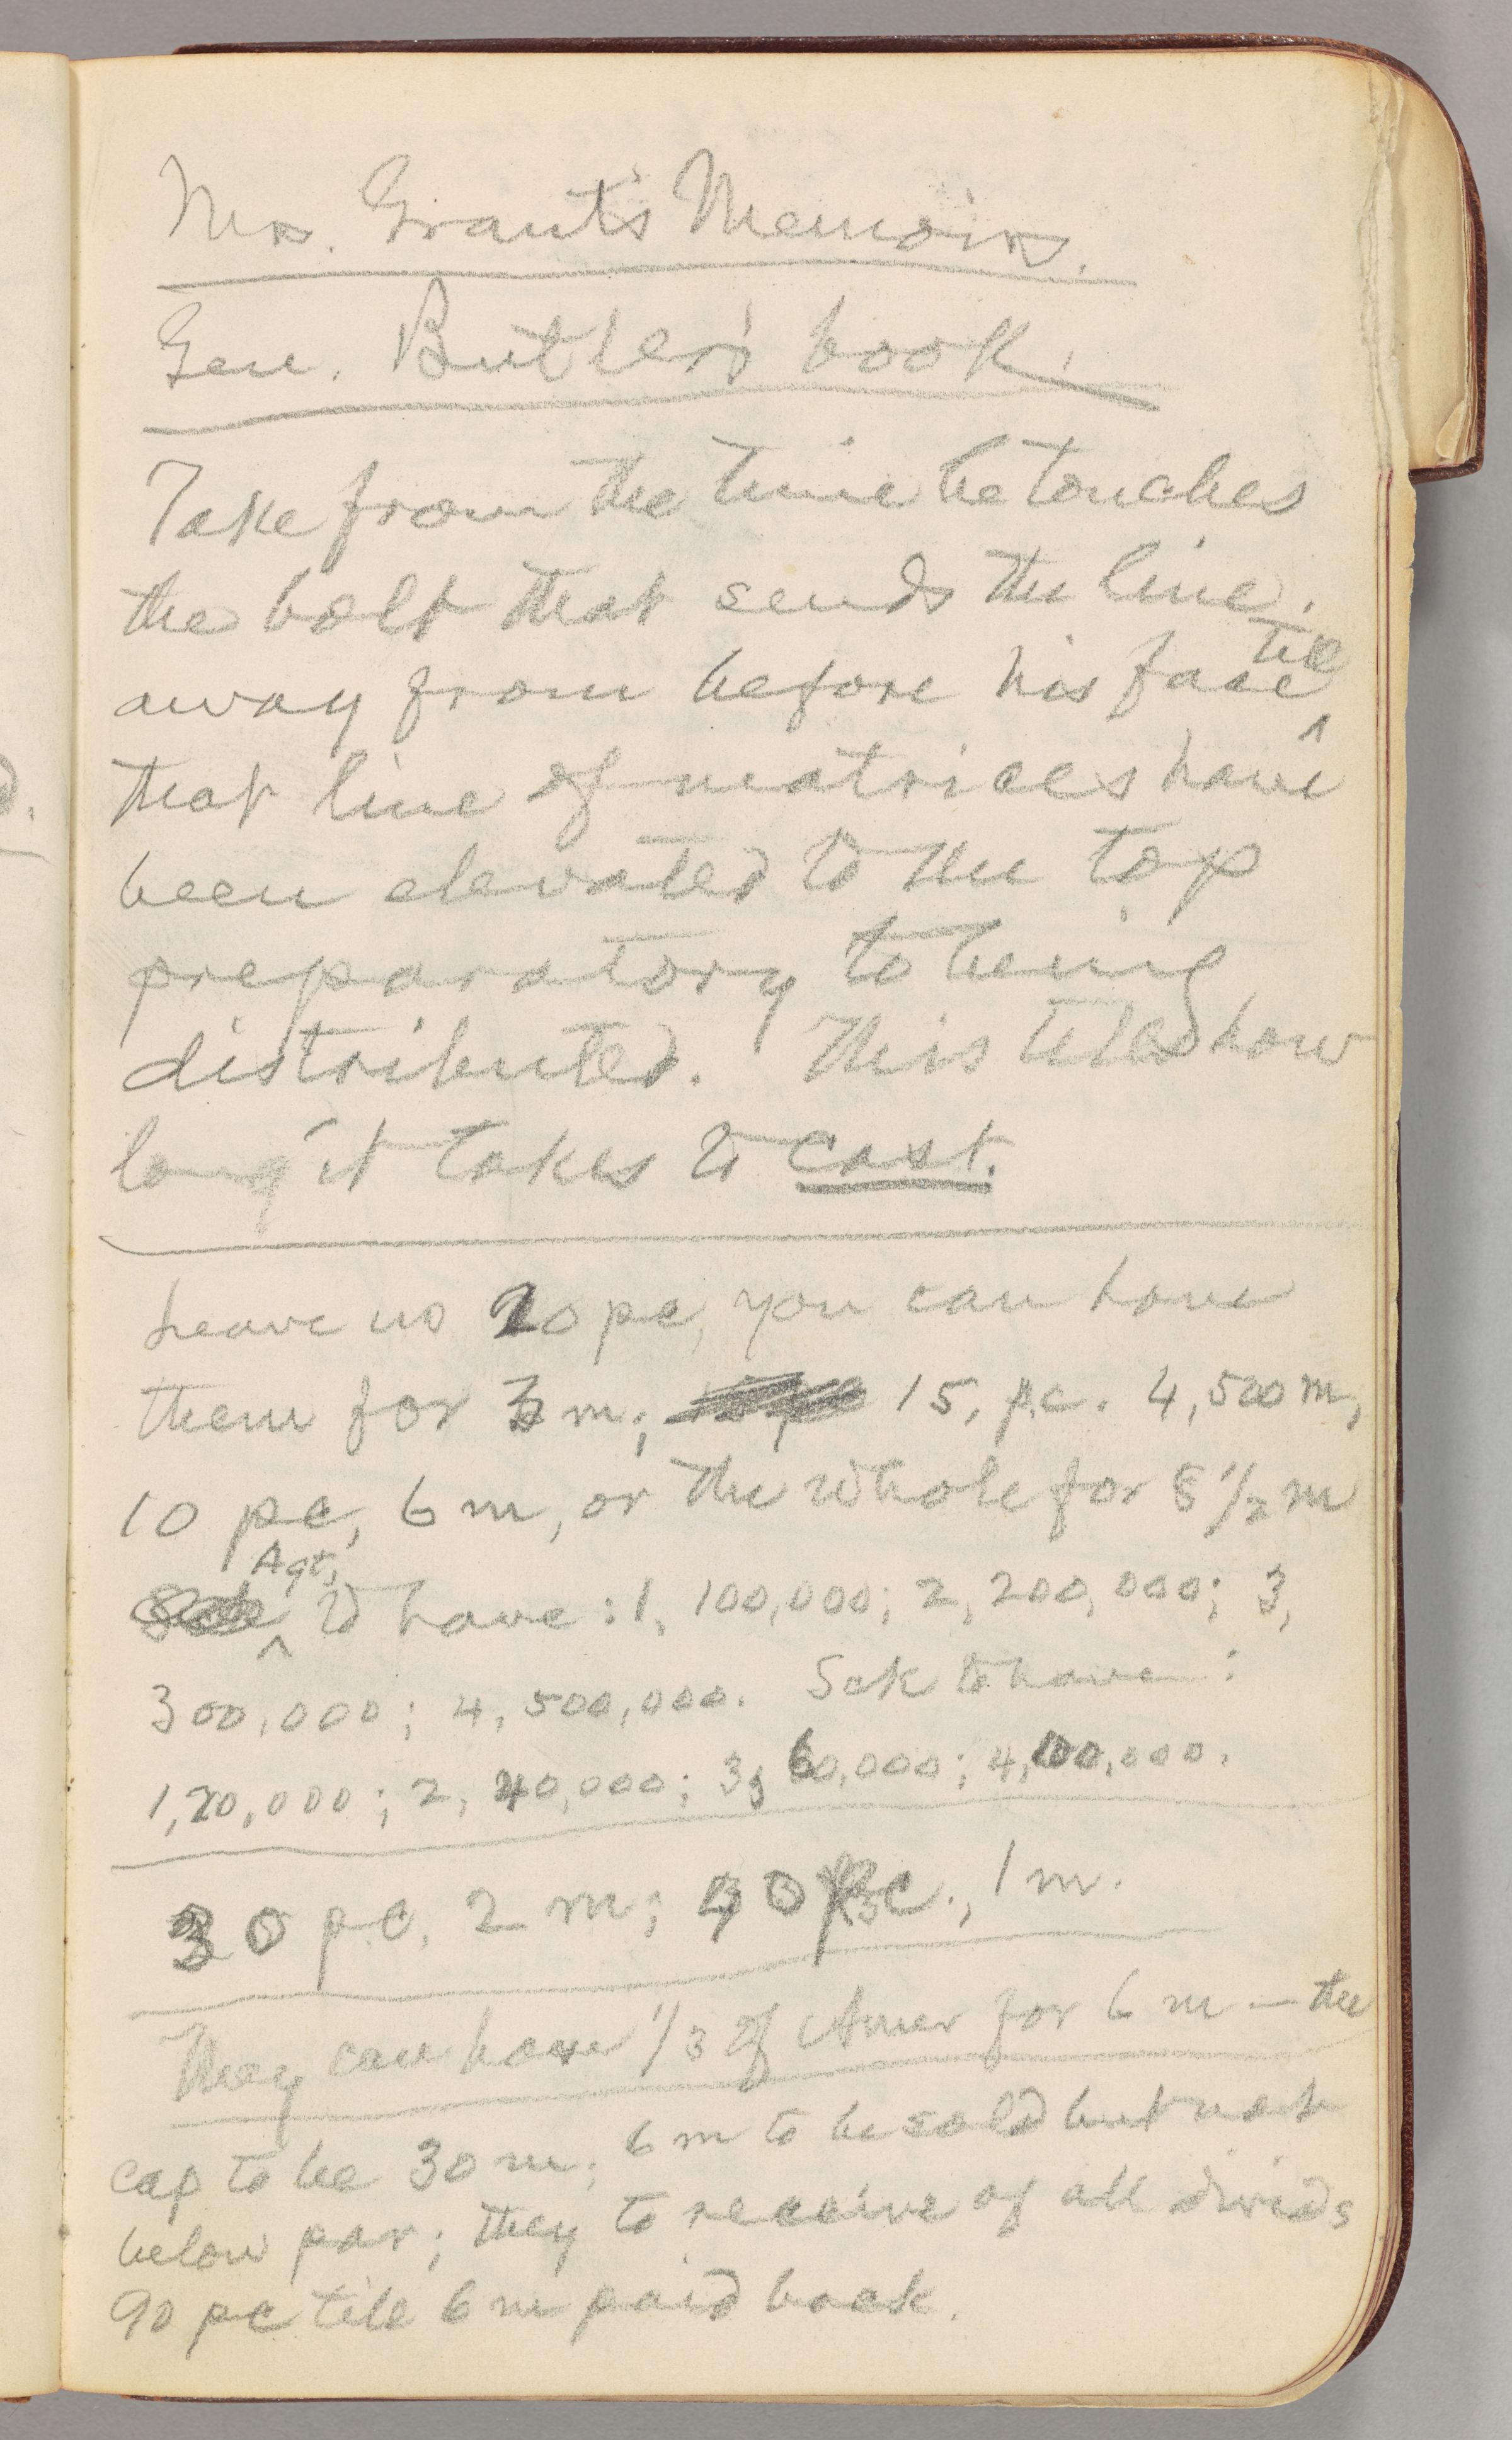 Mrs. Grant's Memoirs.
Gen. Butler's book.
Take from the time he touches
the bolt that sends the line
away from before his face till
that line of matrices have
been elevated to the top
preparatory to being
distributed. This tells how
long it takes to cast.
Leave us 20 pc, you can have
them for 3 m; 15, pc. 4,500 m,
10 pc, 6 m, or the whole for 8 1/2 m
Agt. to have: 1, 100,000; 2, 200,000; 3,
300,000; 4, 500,000. Sck to have:
1, 20,000; 2, 40,000; 3, 60,000; 4, 100,000.
30 pc, 2 m; 40 pc., 1 m.
They can have 1/3 of Amer for 6 m — the
cap to be 30 m; 6 m to be sold but not
below par; they to receive of all divids
90 pc till 6 m paid back.